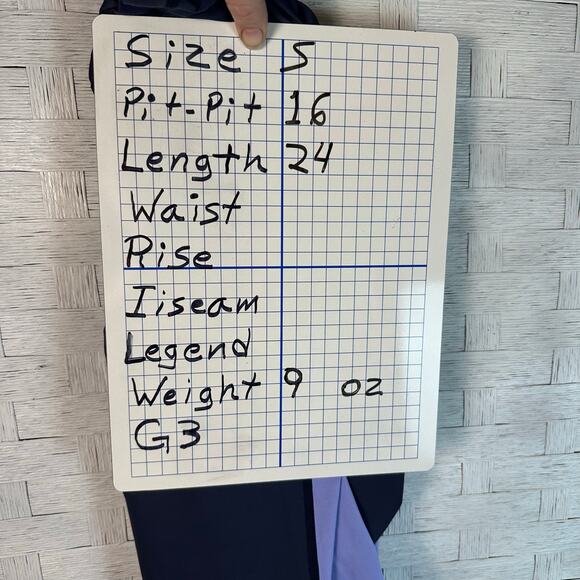 Size S
Pit-Pit 16
Length 24
Waist
Rise
Iiseam
Legend
Weight 9 oz
G3